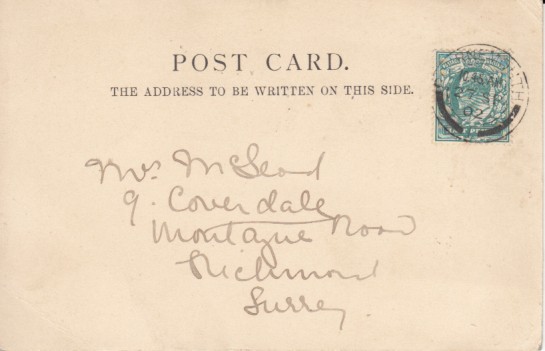 POST CARD.
THE ADDRESS TO BE WRITTEN ON THIS SIDE.
Mrs McLeod
9. Coverdale
Montague Road
Richmond
Surrey